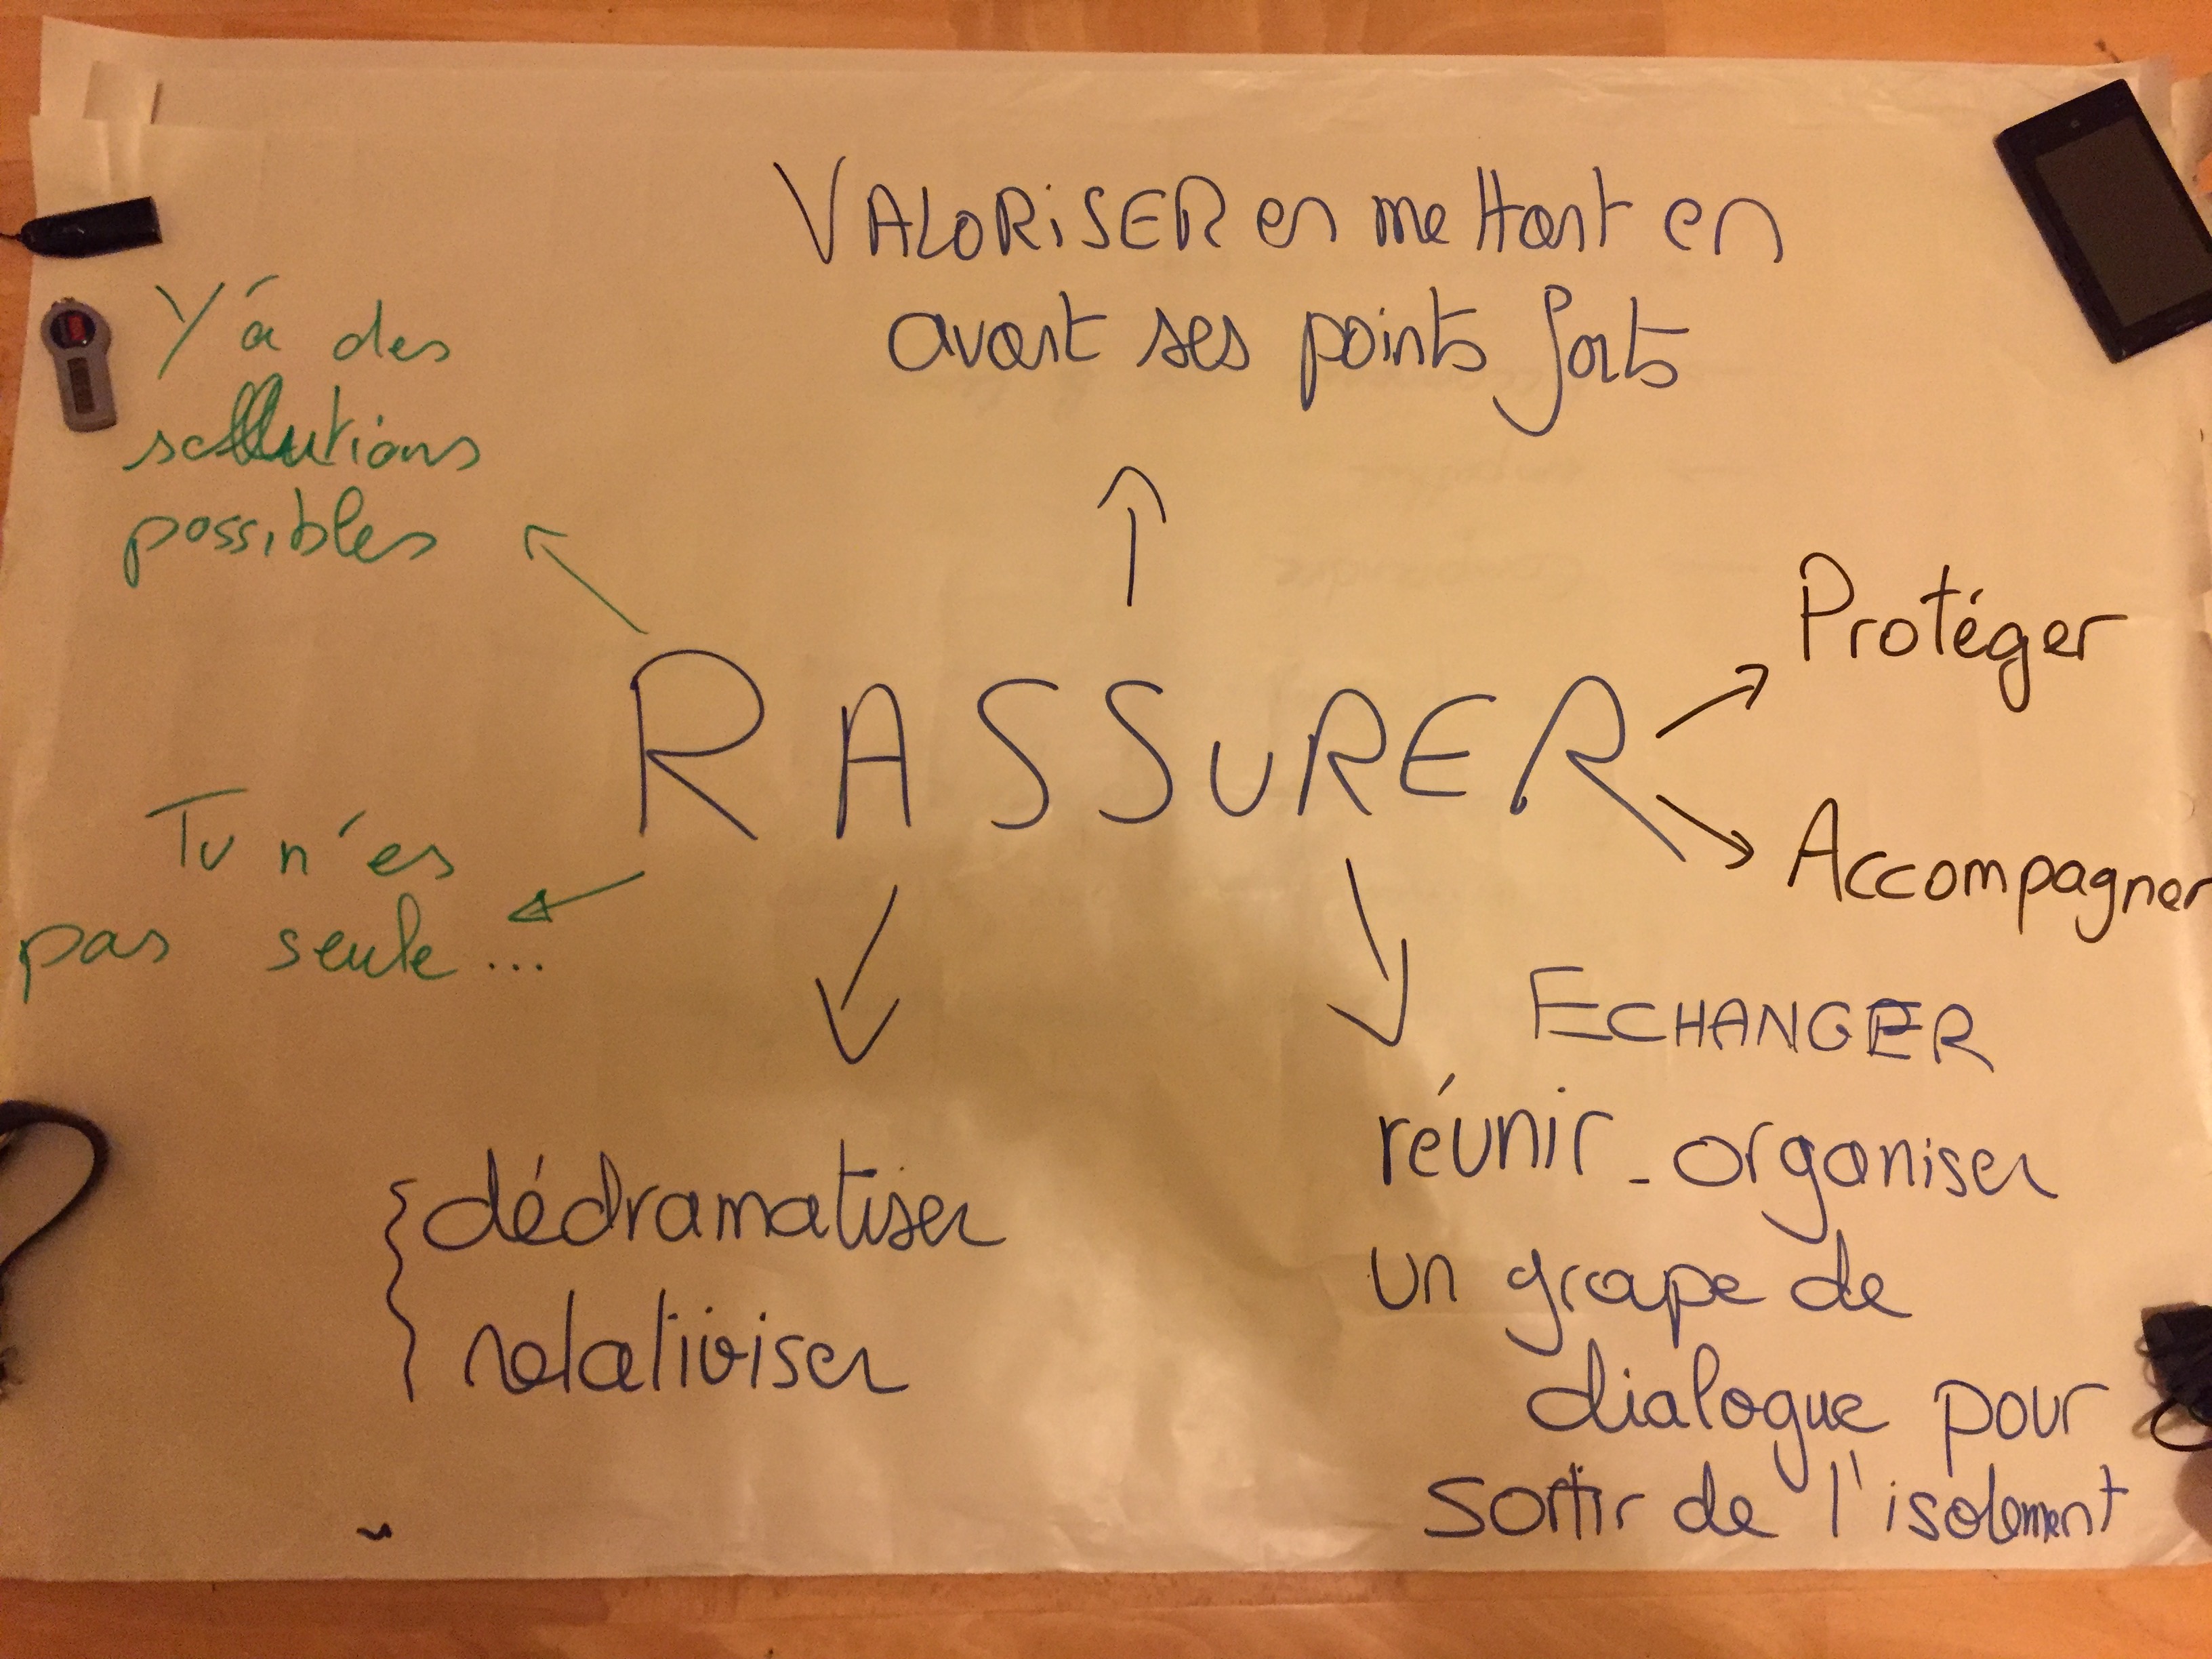 VALORiSER en mettant en
avant ses points forts
Y'a des
sollutions
possibles
Protéger
RASSURER
Accompagner
Tu n'es
pas seule...
ECHANGER
réunir - organiser
un groupe de
dialogue pour
sortir de l'isolement
dédramatiser
relativiser